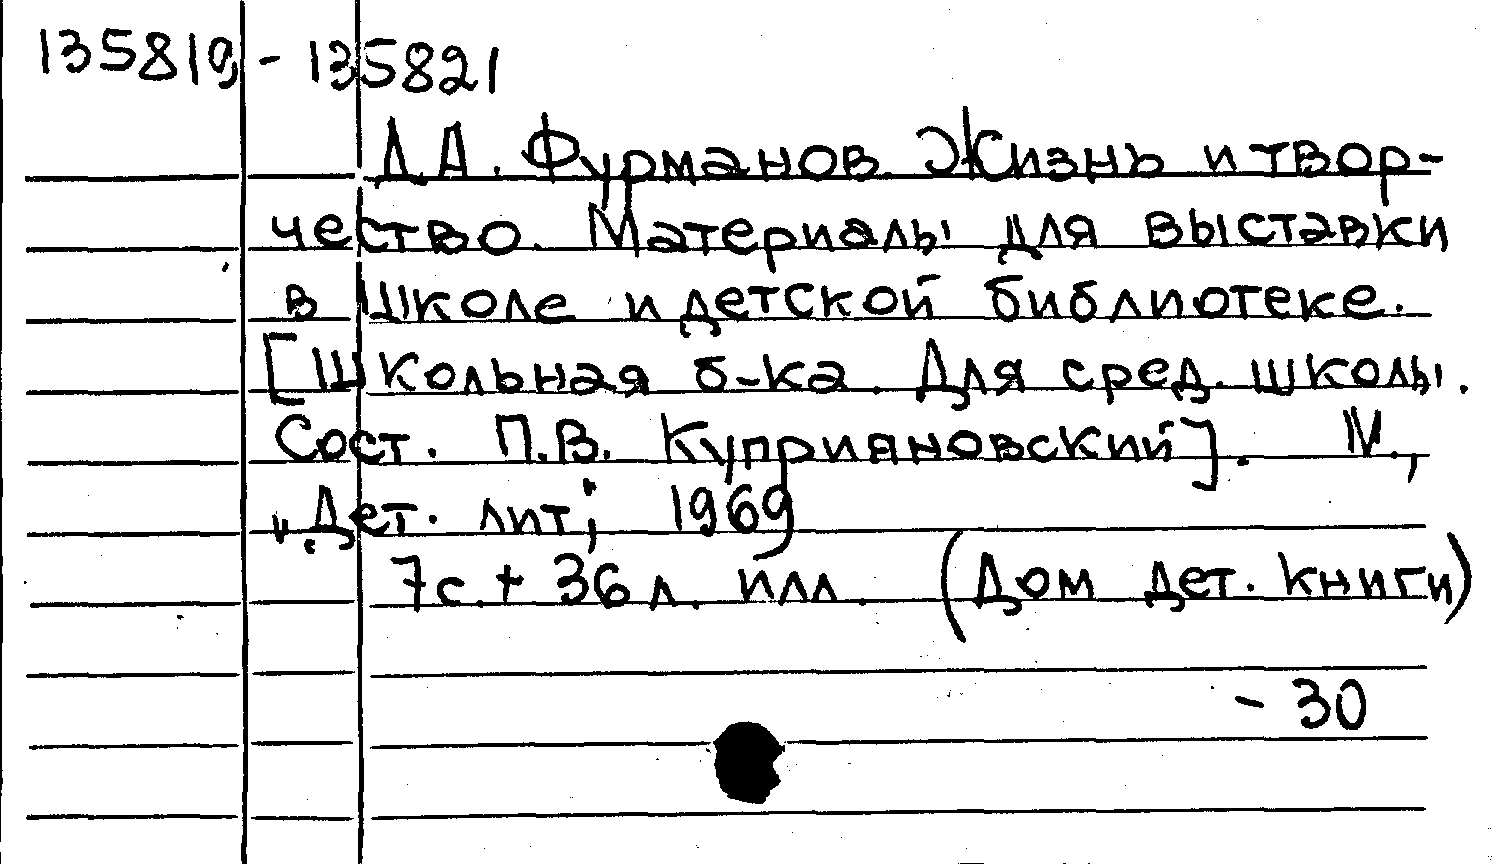 135819 - 135821
Д.А. Фурманов. Жизнь и твор-
чество. Материалы для выставки
в школе и детской библиотеке.
[Школьная б-ка. Для сред. школы.
Сост. П.В. Куприяновский]. М.,
"Дет. лит", 1969
7с. + 36 л. илл. (Дом дет. книги)
- 30